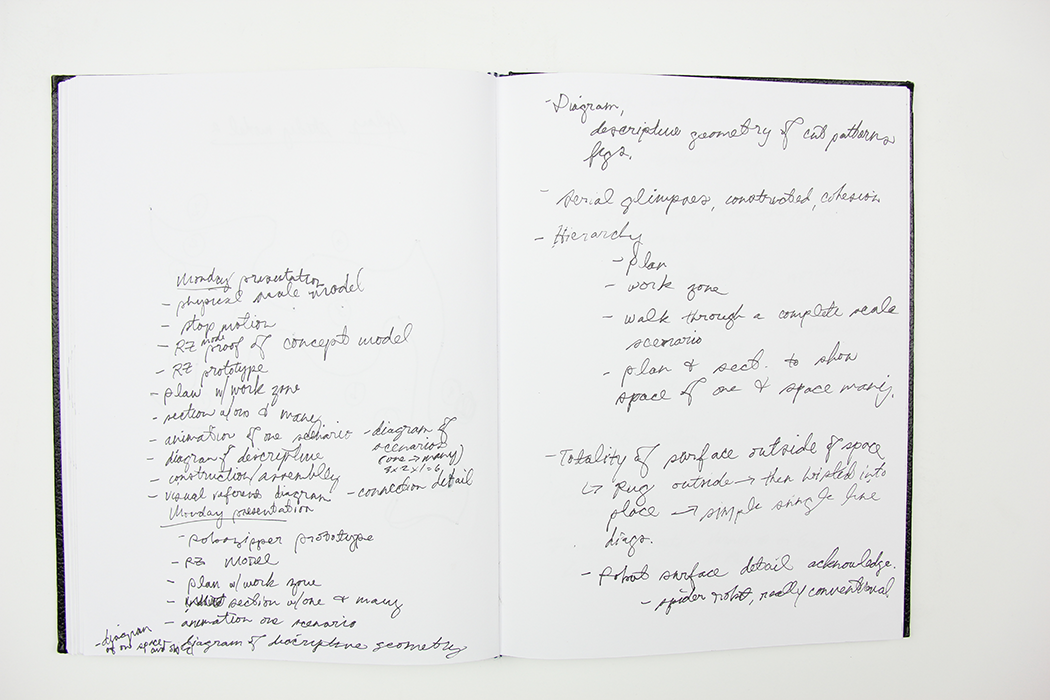 Monday presentation
- physical scale model
- stop motion
- RZ mode proof of concept model
- RZ prototype
- plan w/work zone
- section w/one & many
- animation of one scenario
- diagram of descriptive
- construction/assembly
- visual reference diagram
- diagram of
scenarios
(one → many)
- connection detail
Monday presentation
- robozipper prototype
- RZ model
- plan w/work zone
- section w/one & many
- animation one scenario
- diagram of discriptive geometry
- diagram
of one space
- Diagram,
descriptive geometry of cut patterns
figs.
- serial glimpses, constructed, cohesion
- Hierarchy
- plan
- work zone
- walk through a complete scale
scenario
- plan & sect. to show
space of one & space many.
- Totality of surface outside of space
↳ Rug outside → then twisted into
place → simple single line
diags.
- Robot surface detail acknowledge.
- spider robot, really conventional